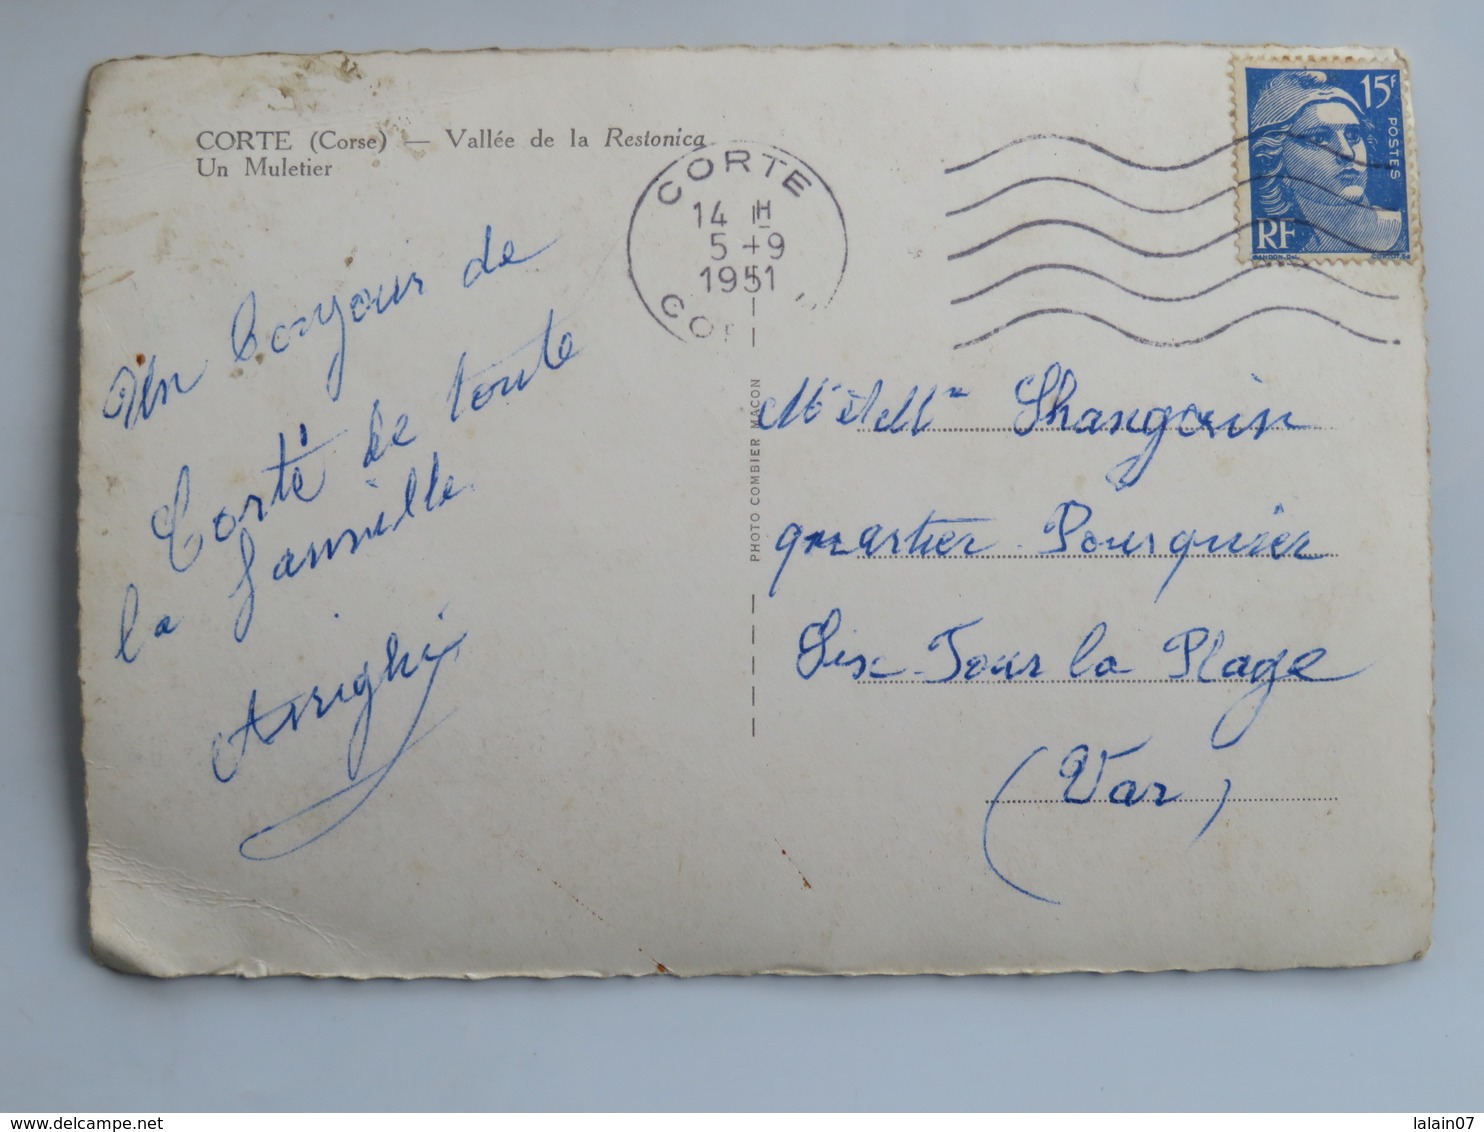 CORTE (Corse) — Vallée de la Restonica
Un Muletier
Un bonjour de
Corté de toute
la famille
Arrighi
CORTE
14 H
5 - 9
1951
CO
PHOTO COMBIER MACON
15F
POSTES
RF
GANDON.DEL.
Mr et Mme
quartier Pourquier
Six-Four la Plage
(Var)
delcampe.net
lalain07